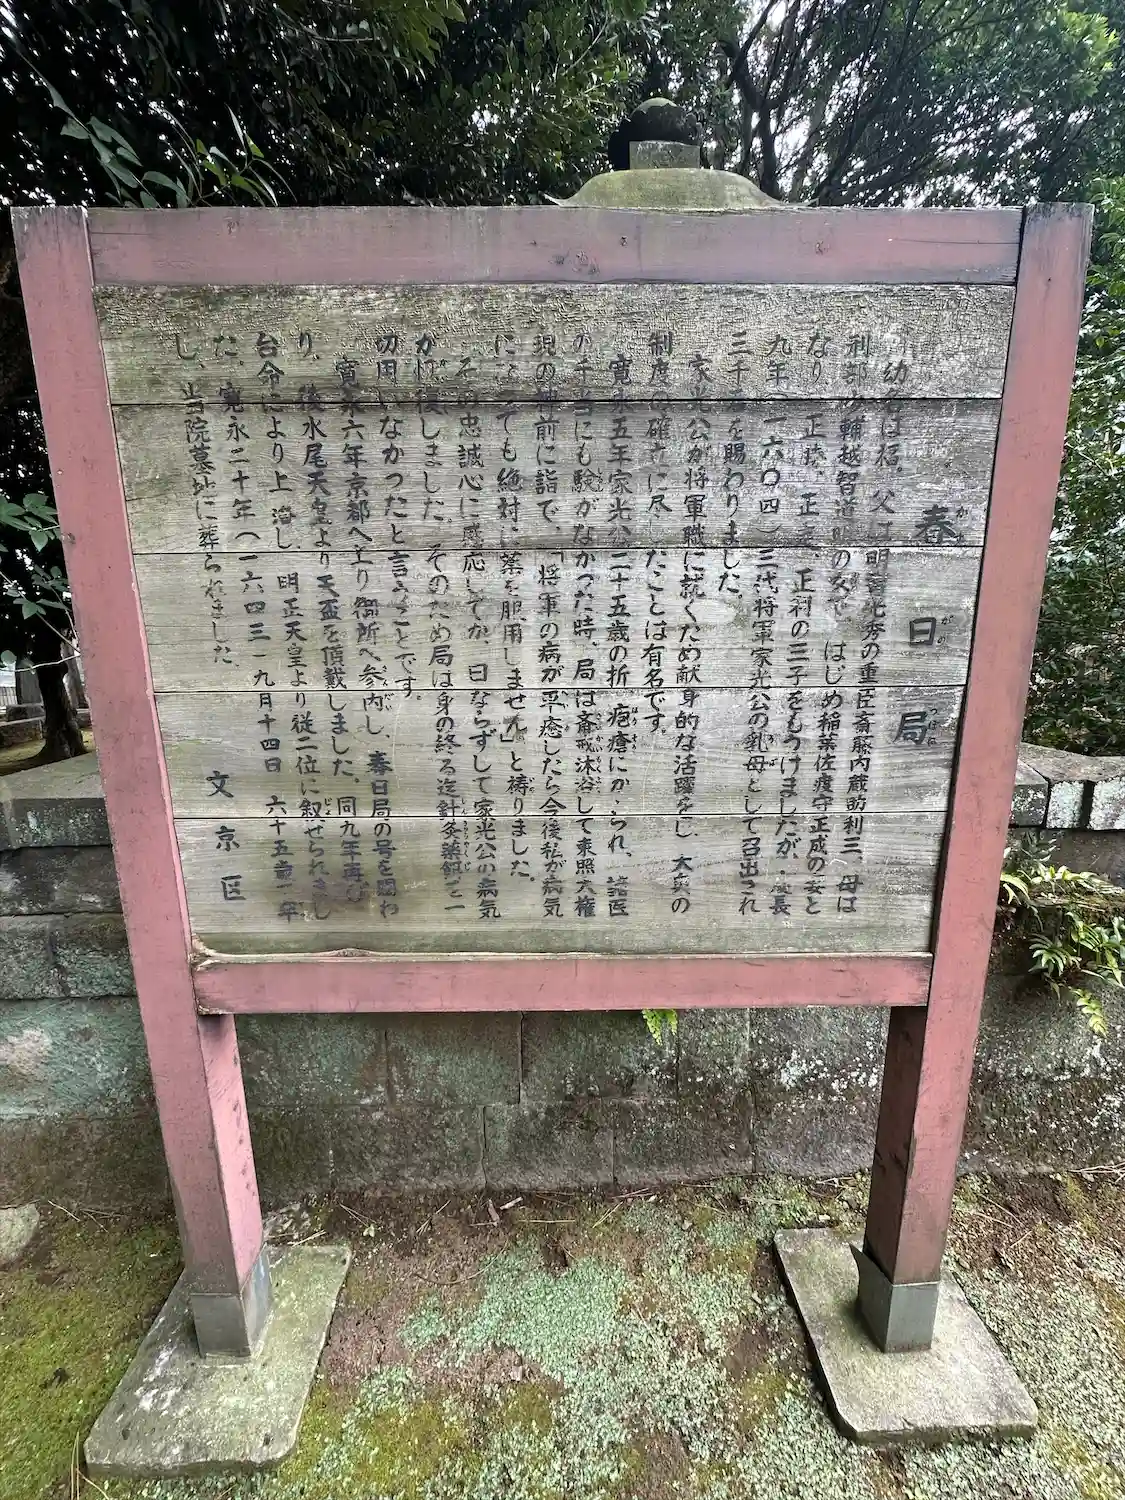 春日局
かすがのつぼね
幼名は福。父は明智光秀の重臣斎藤内蔵助利三、母は
刑部少輔越智道明の女で、はじめ稲葉佐渡守正成の妻と
なり、正勝、正定、正利の三子をもうけましたが、慶長
九年(一六〇四)三代将軍家光公の乳母として召出され
三千石を賜わりました。
家光公が将軍職に就くため献身的な活躍をし、大奥の
制度の確立に尽したことは有名です。
寛永五年家光公二十五歳の折、疱瘡にかゝられ、諸医
の手当にも験がなかった時、局は斎戒沐浴して東照大権
現の神前に詣で、「将軍の病が平癒したら今後私が病気
になっても絶対に薬を服用しません」と祷りました。
その忠誠心に感応してか、日ならずして家光公の病気
が快復しました。そのため局は身の終る迄針灸薬餌を一
切用いなかったと言うことです。
寛永六年京都へ上り御所へ参内し、春日局の号を賜わ
り、後水尾天皇より天盃を頂戴しました。同九年再び
台命により上洛し、明正天皇より従二位に叙せられまし
た。寛永二十年(一六四三)九月十四日 六十五歳で卒
し、当院墓地に葬られました。
文京区